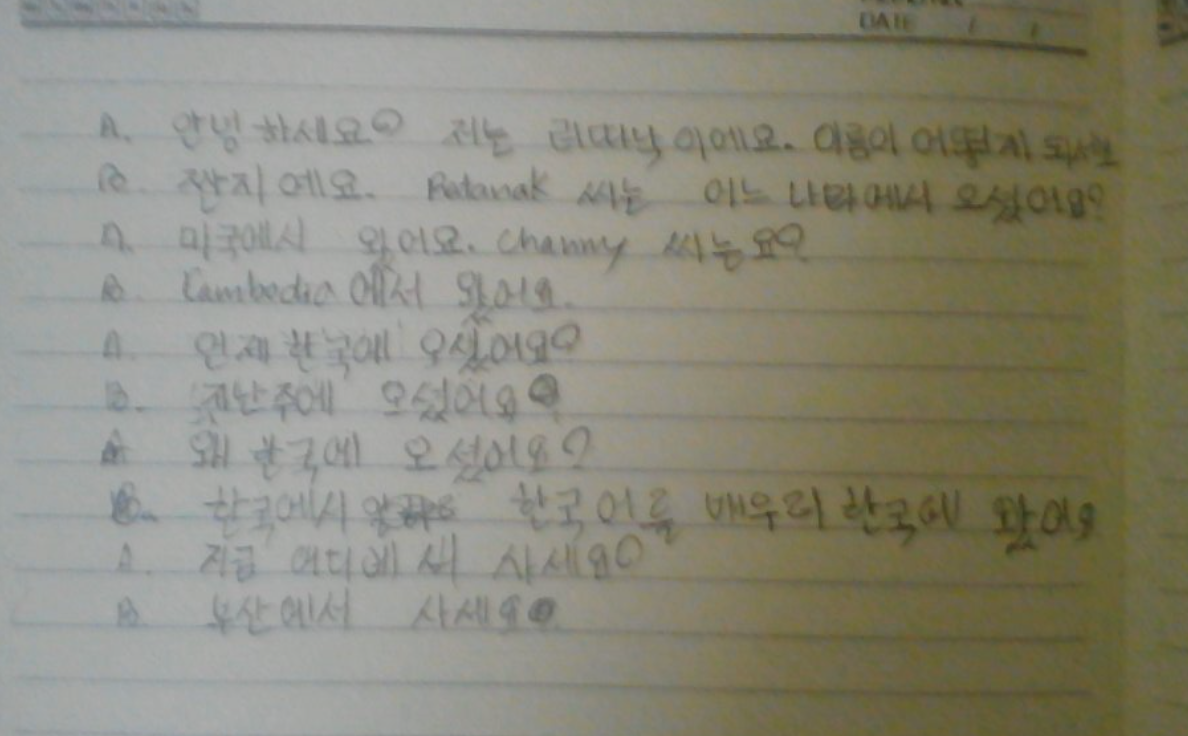 DATE / /
A. 안녕하세요? 저는 리따낙이에요. 이름이 어떻게 되세요
B. 짠지에요. Ratanak 씨는 어느 나라에서 오셨어요?
A. 미국에서 왔어요. Channy 씨는요?
B. Cambodia에서 왔어요.
A. 언제 한국에 오셨어요?
B. 지난주에 오셨어요
A 왜 한국에 오셨어요?
B. 한국에서 한국어를 배우러 한국에 왔어요
A. 지금 어디에서 사세요?
B. 부산에서 사세요